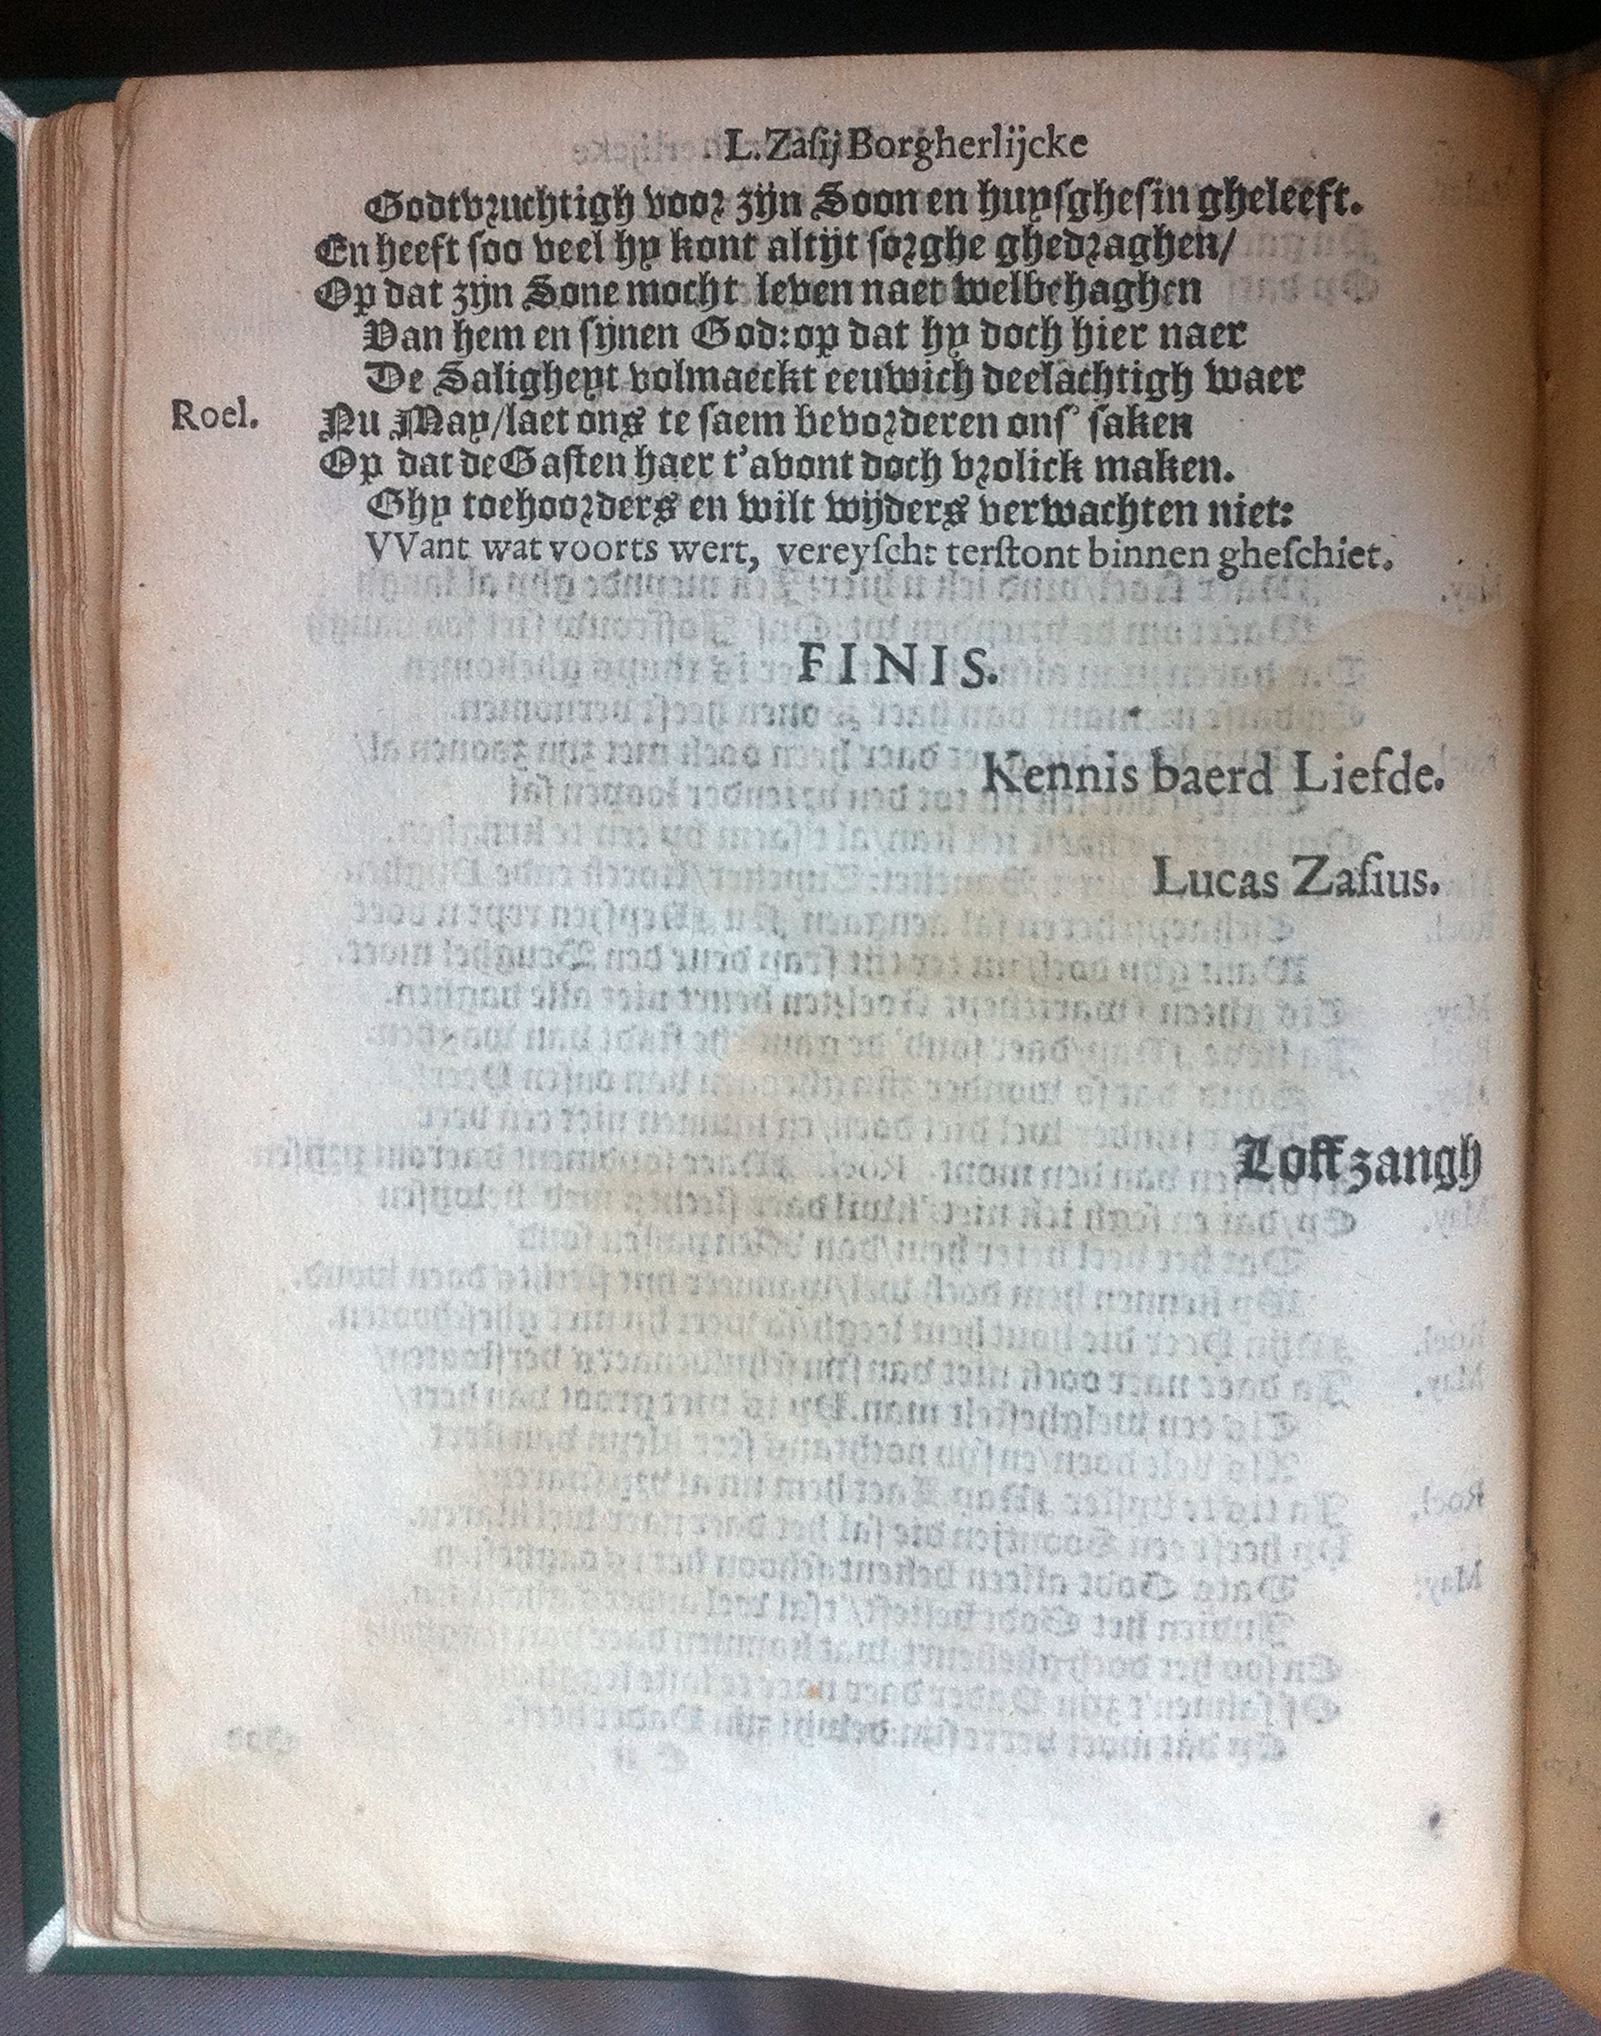 L. Zaſij Borgherlijcke
Godtvruchtigh voor zijn Soon en huyſgheſin gheleeft.
En heeft ſoo veel hy kont altijt ſorghe ghedraghen/
Op dat zijn Sone mocht leven naer welbehaghen
Van hem en ſijnen God: op dat hy doch hier naer
De Saligheyt volmaeckt eeuwich deelachtigh waer
Roel. Nu May/laet ons te ſaem bevorderen onſ' ſaken
Op dat de Gaſten haer t'avont doch vrolick maken.
Ghy toehoorders en wilt wijders verwachten niet:
VVant wat voorts wert, vereyſcht terſtont binnen gheſchiet.
FINIS.
Kennis baerd Liefde.
Lucas Zaſius.
Loffzangh